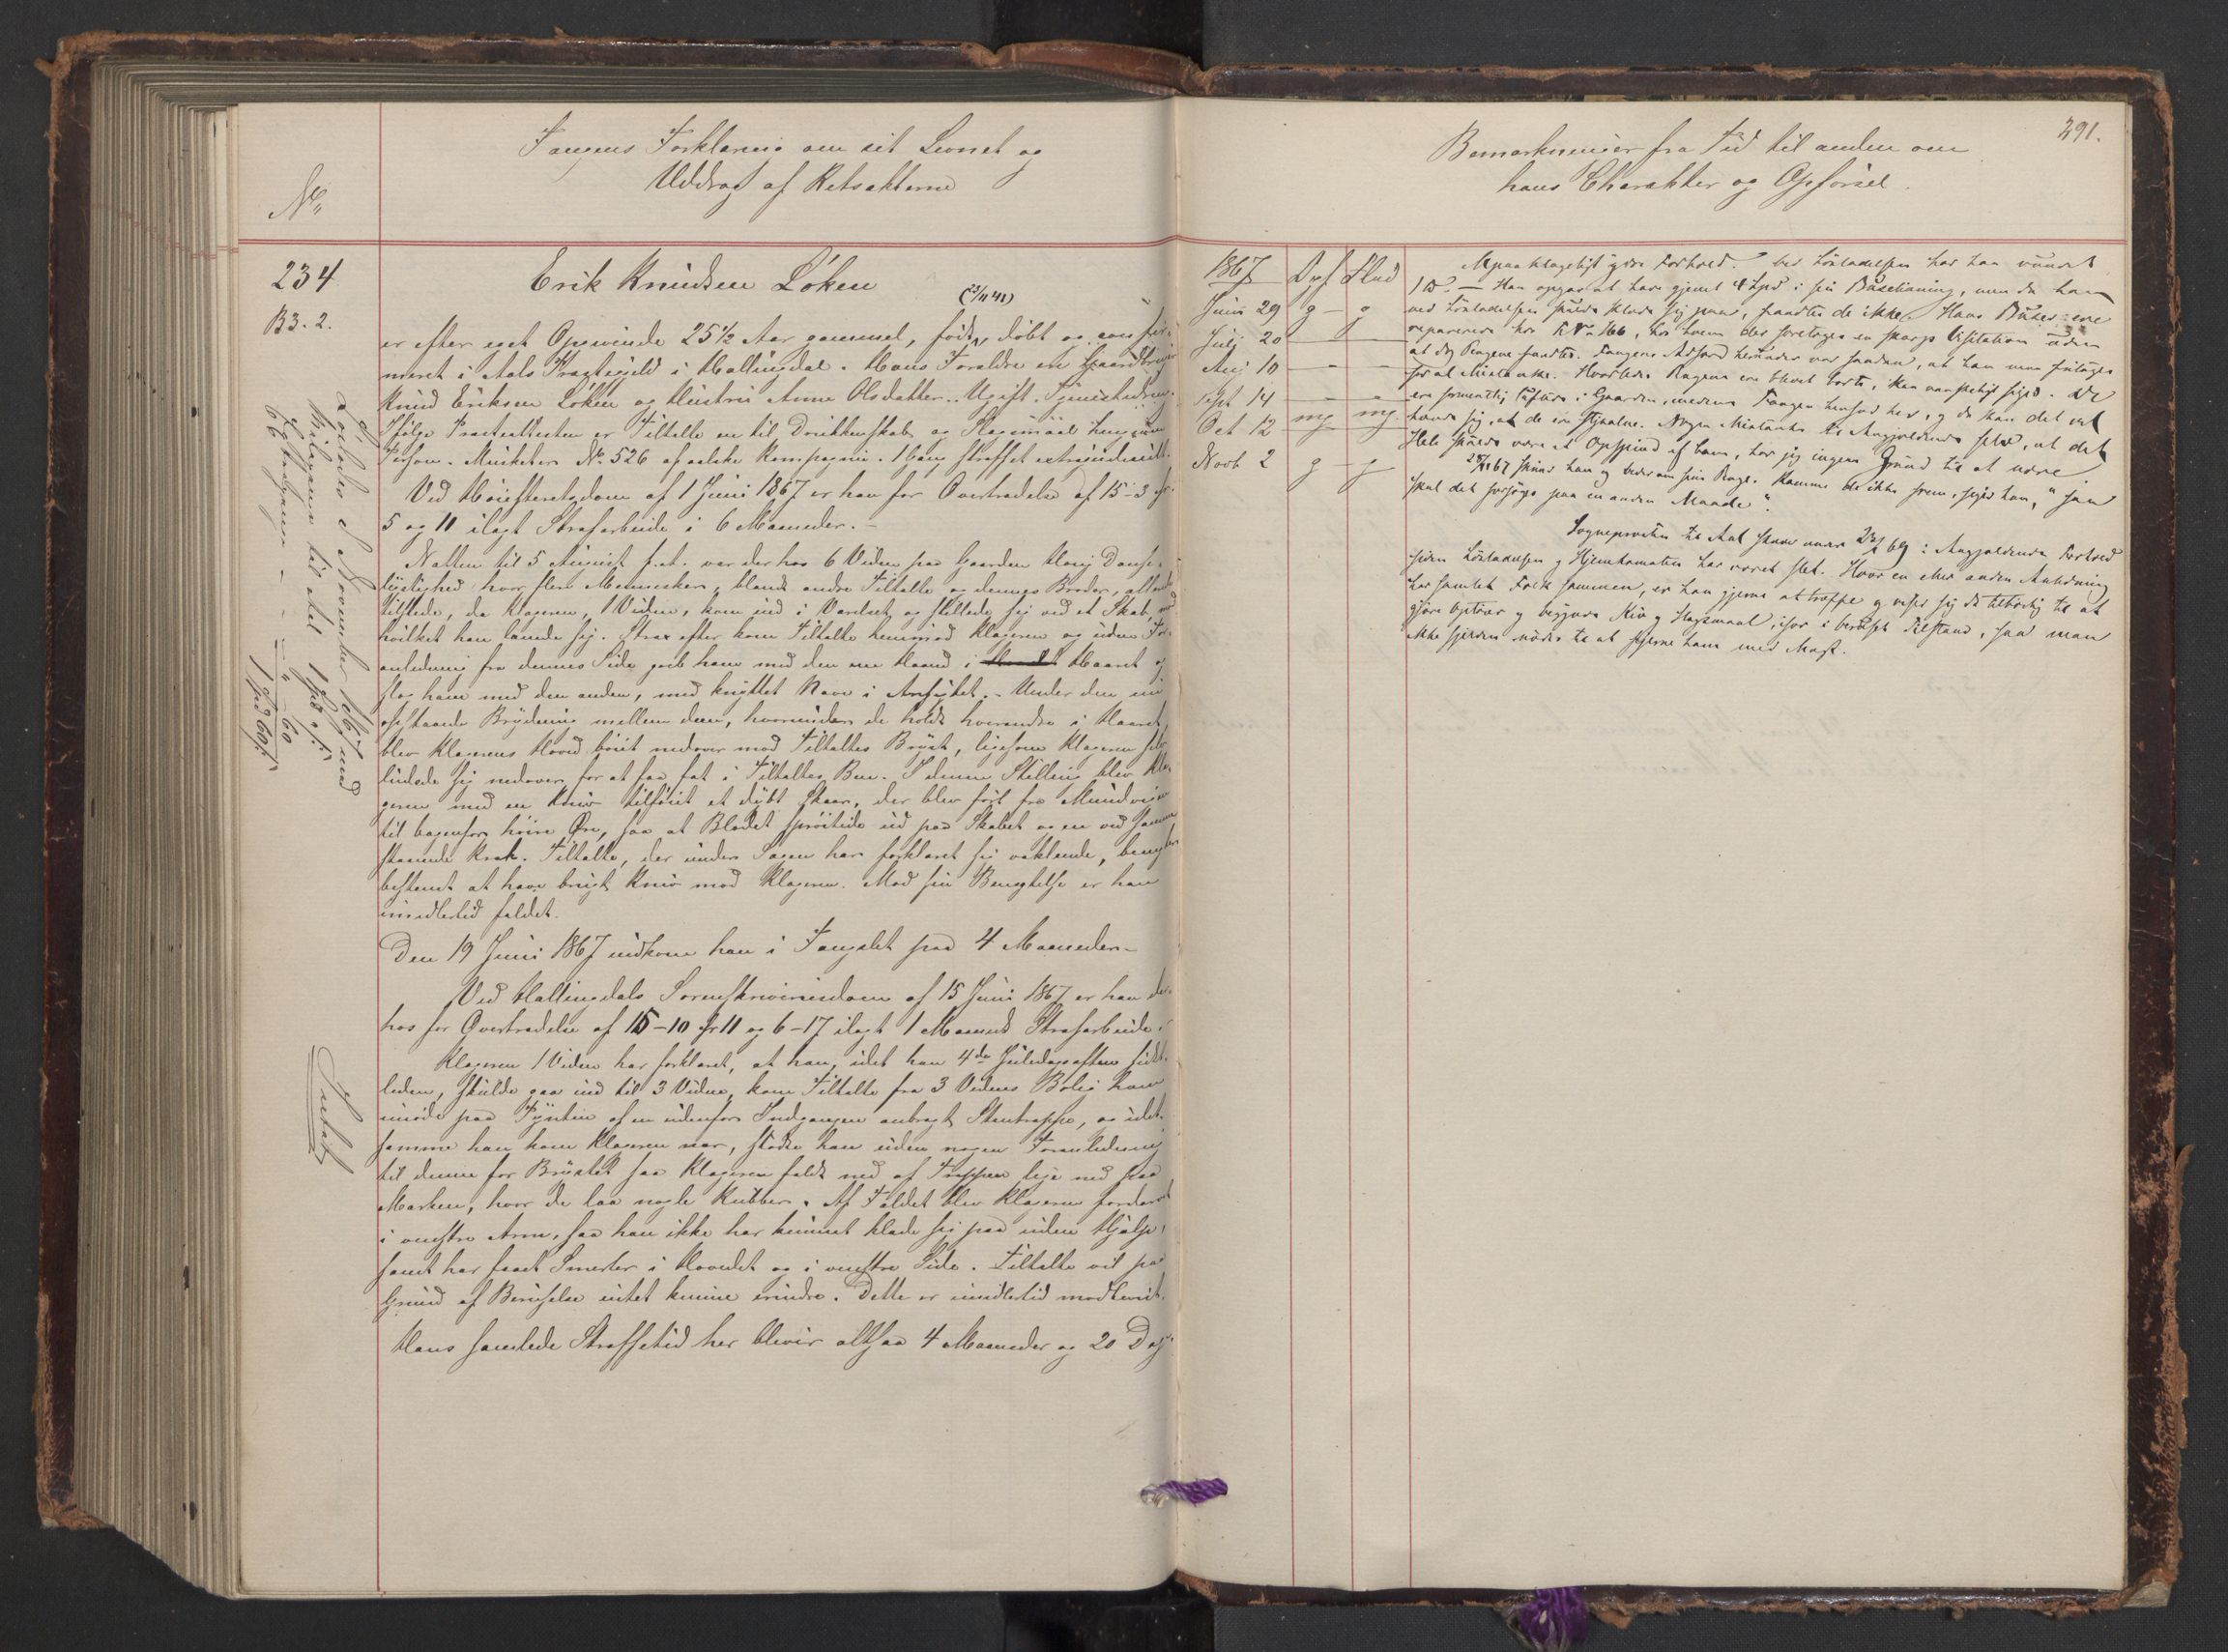 Fangens Forklaring om sit Levnet og
Uddrag af Retsakterne
No
234
B3. 2.
Erik Knudsen Løken
(3/11 41)
er efter eget Opgivende 25½ Aar gammel, født, døbt og confir-
meret i Aals Præstegjeld i Hallingdal. Hans Forældre ere Gaardbruger
Knud Eriksen Løken og Hustru Anne Olsdatter. Ugift. Tjenestedreng.
Ifølge Præsteattesten er Tiltalte en til Drikkenskab og Slagsmaal hengiven
Person. Musketer No 526 af aalske Kompagni. 1 Gang straffet extrajudicielt.
Ved Høiesteretsdom af 1 Juni 1867 er han for Overtrædelse af 15-3 jfr
5 og 11 ilagt Strafarbeide i 6 Maaneder.-
Natten til 5 August f.A. var der hos 6 Vidne paa Gaarden Dandse-
lystighed hvor flere Mennesker, blandt andre Tiltalte og dennes Broder,
tilstede, da Klageren, 1 Vidne, kom ind i Værelset og stillede sig ved et Skab, mod
hvilket han lænede sig. Strax efter kom Tiltalte henimod Klageren og uden For-
anledning fra dennes Side greb ham med den ene Haand i Haaret og
slog ham med den anden, med knyttet Næve i Ansigtet. - Under den nu
opstaaede Brydning mellem dem, hvorunder de holdt hverandre i Haaret,
blev Klagerens Hoved bøiet nedover mod Tiltaltes Bryst, ligesom Klageren selv
ludede sig nedover for at faa fat i Tiltaltes Ben. I denne Stilling blev Kla-
geren med en Kniv tilføiet et dybt Skaar, der blev ført fra Mundvigen
til bagenfor høire Øre, saa at Blodet sprøitede ud paa Skabet og en ved Samme
staaende Krak. Tiltalte, der under Sagen har forklaret sig vaklende, benegter
bestemt at have brugt Kniv mod Klageren. Mod sin Benegtelse er han
imidlertid fældet.
Den 19 Juni 1867 indkom han i Fangslet paa 4 Maaneder-
Ved Hallingdals Sorenskriveriesdom af 15 Juni 1867 er han der-
hos for Overtrædelse af 15-10 jfr 11 og 6-17 ilagt 1 Maaneds Strafarbeide.
Klageren 1 Vidne har forklaret, at han, idet han 4de Juledagsaften sidst-
leden, skulde gaa ind til 3 Vidne, kom Tiltalte fra 3 Vidnes Bolig ham
imøde paa af en udenfor Indgangen anbragt Stentrappe, og idet-
samme han kom Klageren nær, stødte han uden nogen Foranledning
til denne for Brystet saa Klageren faldt ned af Trappen lige ned paa
Marken, hvor de laa nogle Kubber. Af Faldet blev Klageren fordærvet
i venstre Arm, saa han ikke har kunnet klæde sig paa uden Hjælp,
samt har faaet Smerter i Hovedet og i venstre Side. Tiltalte vil paa
Grund af Beruselse intet kunne erindre. Dette er imidlertid modbevist.
Hans samlede Straffetid her bliver altsaa 4 Maaneder og 20 Dage
Løsladt d 2 November 1867 med
til Aal 1 Spd
- - - " - 60
1 Spd 60 s
291.
Bemærkninger fra Tid til anden om
hans Charakter og Opførsel.
1867 Opf Flid
Juni 29 g - g
Juli 20 - -
Aug 10 - -
Sept 14 - -
Oct 12 mg mg
Novb 2 g - g
Upaaklageligt ydre Forhold. Ved Løsladelsen har han vundet
1 ℔. - Han opgav at have gjemt 4 Spd i sin Buxelinning, men da han
ved Løsladelsen skulde klæde sig paa, fandtes de ikke. Hans Buxer ere
reparerede hos F No 166, hos hvem der foretoges en skarp Visitation uden
at dog Pengene fandtes. Fangens Adfærd herunder var saadan, at han maa fritages
for al Mistanke. Hvorledes Pengene ere blevet borte, kan vanskeligt siges. De
i Gaarden, medens Fangen hensad her, og da kan det vel
hænde sig, at de ere stjaalne. Nogen Mistanke til Angjældende selv, at det
Hele skulde være et Opspind af ham, har jeg ingen Grund til at nære
25/11 67 skriver han og beder om sine Penge. Komme de ikke frem, siger han, "saa
skal det forsøges paa en anden Maade".
Sognepresten til Aal skrev under 23/ 69: Angjældendes Forhold
siden Løsladelsen og Hjemkomsten har været slet. Hvor en eller anden Anledning
har samlet Folk sammen, er han gjerne at træffe og viser sig da tilbøielig til at
gjøre Optøier og begynde Kiv og Slagsmaal, især i beruset Tilstand, saa man
ikke sjelden nødes til at fjerne ham med Magt.